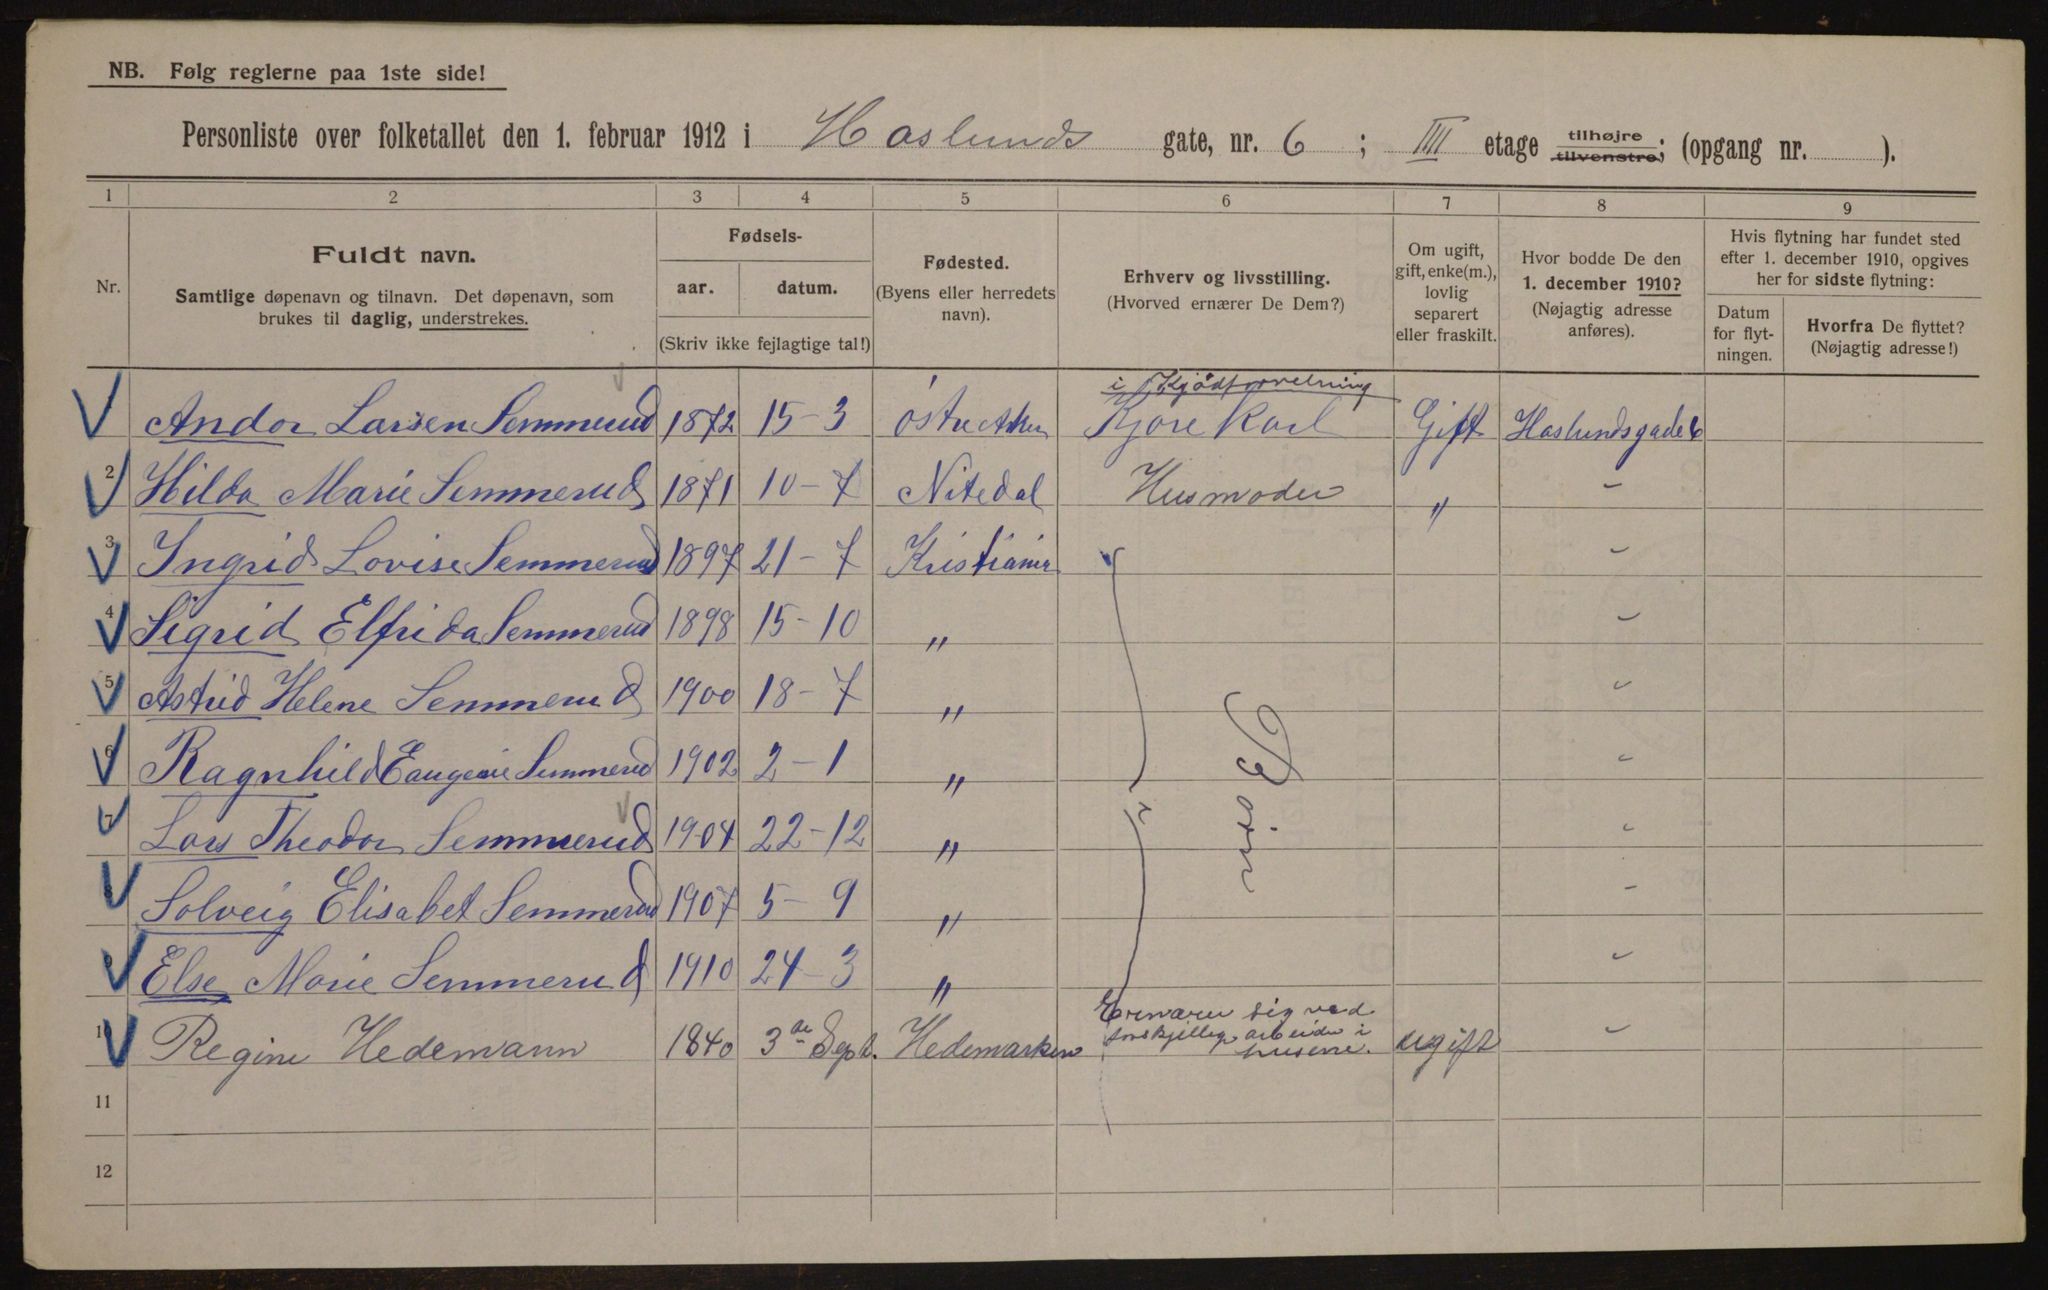 NB. Følg reglerne paa 1ste side!
Personliste over folketallet den 1. februar 1912 i Haslunds gate, nr. 6 ; IIII etage tilhøjre tilvenstre; (opgang nr. ).
1 2 3 4 5 6 7 8 9
Nr.
Fuldt navn.
Samtlige døpenavn og tilnavn. Det døpenavn, som
brukes til daglig, understrekes.
Fødsels-
aar. datum.
(Skriv ikke fejlagtige tal!)
Fødested.
(Byens eller herredets
navn).
Erhverv og livsstilling.
(Hvorved ernærer De Dem?)
Om ugift,
gift, enke(m.),
lovlig
separert
eller fraskilt.
Hvor bodde De den
1. december 1910?
(Nøjagtig adresse
anføres).
Hvis flytning har fundet sted
efter 1. december 1910, opgives
her for sidste flytning:
Datum
for flyt-
ningen.
Hvorfra De flyttet?
(Nøjagtig adresse!)
i Kjödforrelning
Andor Larsen Semmerud 1872 15-3 östre Aker Kjørekarl Gift Haslundsgade 6
2 Hilda Marie Semmerud 1871 10-7 Nitedal Husmoder " -
3 Ingrid Lovise Semmerud 1897 21-7 Kristiania -
4 Sigrid Elfrida Semmerud 1898 15-10 " -
5 Astrid Helene Semmerud 1900 18-7 " -
6 Ragnhild Eaugenie Semmerud 1902 2-1 " -
Börn
7 Lars Theodor Semmerud 1904 22-12 " -
8 Solveig Elisabet Semmerud 1907 5-9 " -
9 Else Marie Semmerud 1910 24-3 " -
10 Regine Hedemann 1840 3de Sept. Hedemarken Ernærer sig ved
forskjellige arbeider i
husene. ugift -
11
12